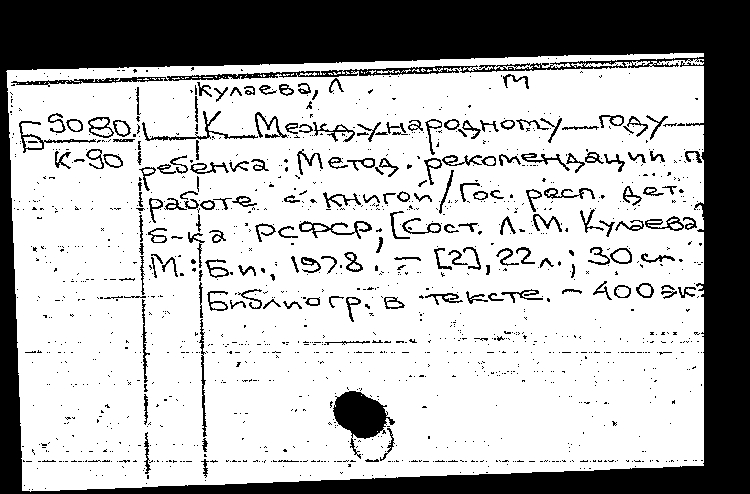 Кулаева, Л М
Б 9080 К Международному году
К-90 ребенка : Метод. рекомендации
работе с книгой / Гос. респ. дет.
б-ка РСФСР; [Сост. Л. М. Кулаева]
М.: Б.и., 1978. — [2], 22 л.; 30 см.
Библиогр. в тексте. — 400 экз